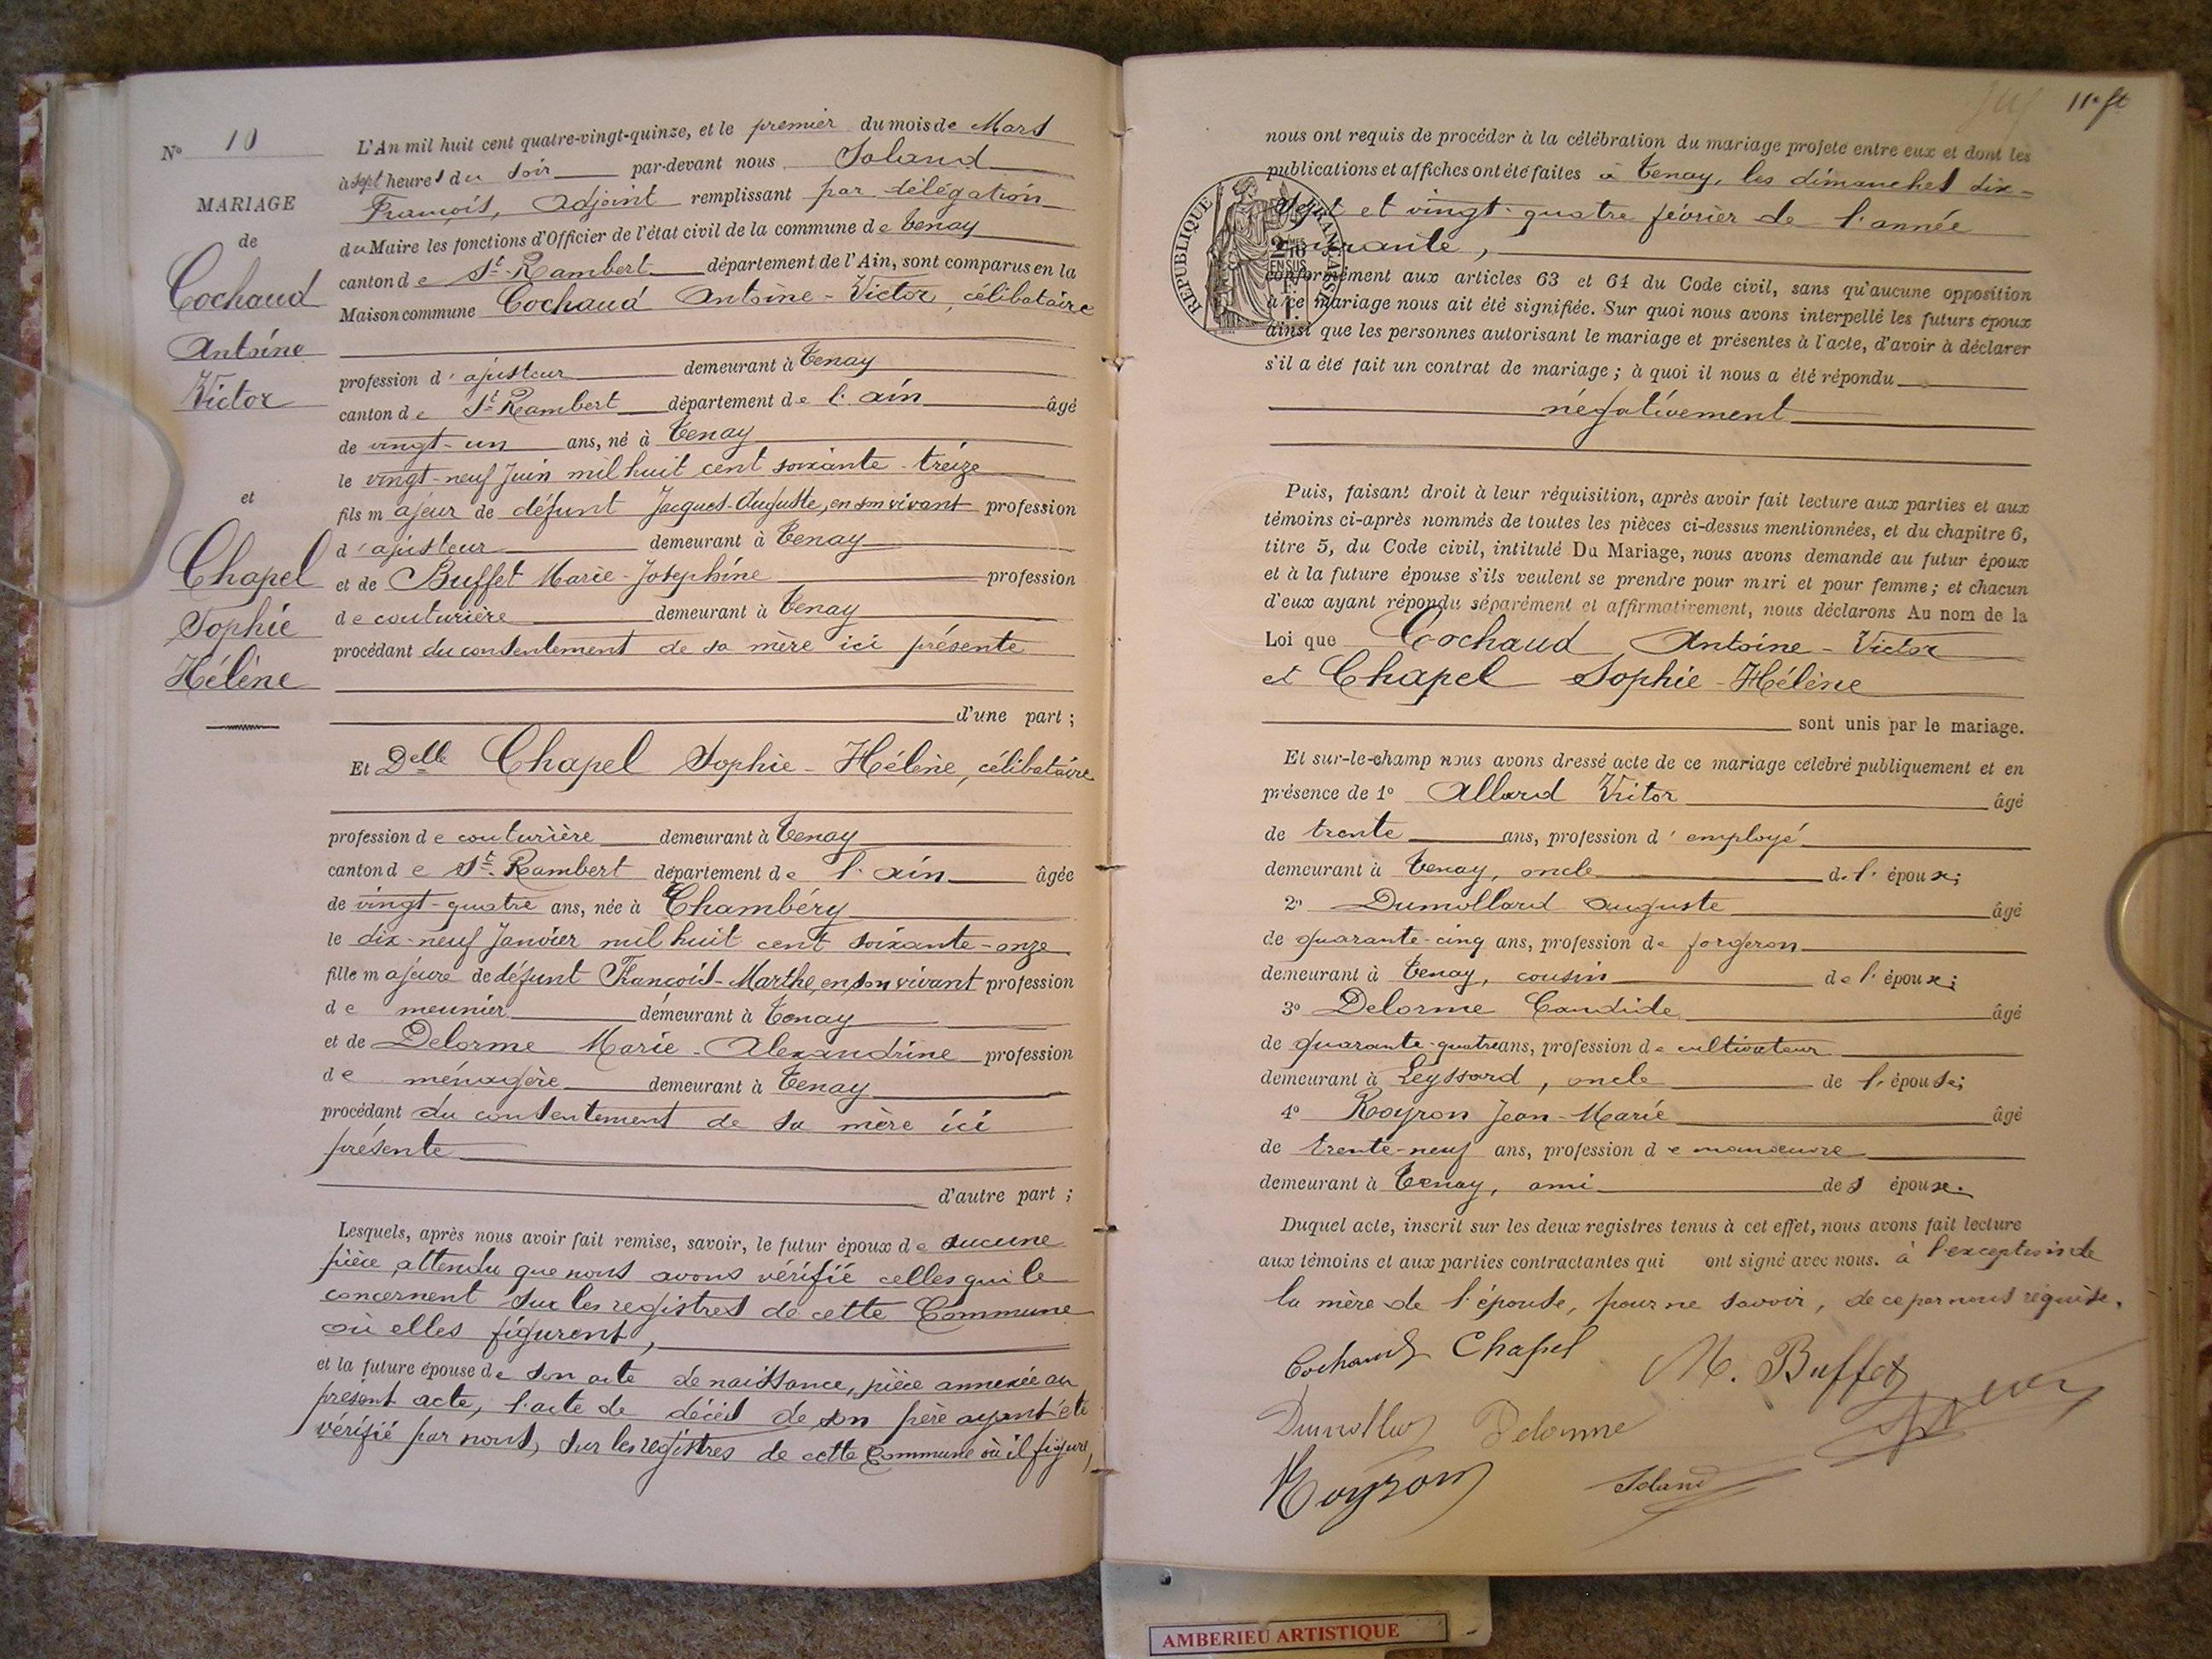 N° 10
MARIAGE
de
Cochaud
Antoine
Victor
et
Chapel
Sophie
Hélène
L'An mil huit cent quatre-vingt-quinze, et le premier du mois de Mars
à sept heures du soir par-devant nous Soland
François, Adjoint remplissant par délégation
du Maire les fonctions d'Officier de l'état civil de la commune de Tenay
canton de St-Rambert département de l'Ain, sont comparus en la
Maison commune Cochaud Antoine-Victor, célibataire
profession d'ajusteur demeurant à Tenay
canton de St-Rambert département de l'Ain âgé
de vingt-un ans, né à Tenay
le vingt-neuf Juin mil huit cent soixante-treize
fils majeur de défunt Jacques-Auguste, en son vivant profession
d'ajusteur demeurant à Tenay
et de Buffet Marie-Josephine profession
de couturière demeurant à Tenay
procédant du consentement de sa mère ici présente
d'une part ;
Et Delle Chapel Sophie-Hélène, célibataire
profession de couturière demeurant à Tenay
canton de St-Rambert département de l'Ain âgée
de vingt-quatre ans, née à Chambéry
le dix-neuf Janvier mil huit cent soixante-onze
fille majeure de défunt François-Marthe, en son vivant profession
de meunier demeurant à Tenay
et de Delorme Marie-Alexandrine profession
de ménagère demeurant à Tenay
procédant du consentement de sa mère ici
présente
d'autre part ;
Lesquels, après nous avoir fait remise, savoir, le futur époux de aucune
pièce, attendu que nous avons vérifié celles qui le
concernent sur les registres de cette Commune
où elles figurent,
et la future épouse de son acte de naissance, pièce annexée au
présent acte, l'acte de décès de son père ayant été
vérifié par nous, sur les registres de cette Commune où il figure,
11e ft
nous ont requis de procéder à la célébration du mariage projeté entre eux et dont les
publications et affiches ont été faites à Tenay, les dimanches dix-
sept et vingt-quatre février de l'année
courante,
conformément aux articles 63 et 64 du Code civil, sans qu'aucune opposition
à ce mariage nous ait été signifiée. Sur quoi nous avons interpellé les futurs époux
ainsi que les personnes autorisant le mariage et présentes à l'acte, d'avoir à déclarer
s'il a été fait un contrat de mariage ; à quoi il nous a été répondu
négativement
RÉPUBLIQUE FRANÇAISE
Puis, faisant droit à leur réquisition, après avoir fait lecture aux parties et aux
témoins ci-après nommés de toutes les pièces ci-dessus mentionnées, et du chapitre 6,
titre 5, du Code civil, intitulé Du Mariage, nous avons demandé au futur époux
et à la future épouse s'ils veulent se prendre pour mari et pour femme ; et chacun
d'eux ayant répondu séparément et affirmativement, nous déclarons Au nom de la
Loi que Cochaud Antoine-Victor
et Chapel Sophie-Hélène
sont unis par le mariage.
Et sur-le-champ nous avons dressé acte de ce mariage célébré publiquement et en
présence de 1° Allard Victor âgé
de trente ans, profession d'employé
demeurant à Tenay, oncle de l'époux;
2° Dumollard Auguste âgé
de quarante-cinq ans, profession de forgeron
demeurant à Tenay, cousin de l'époux;
3° Delorme Candide âgé
de quarante-quatre ans, profession de cultivateur
demeurant à Leyssard, oncle de l'épouse;
4° Royron Jean-Marie âgé
de trente-neuf ans, profession de manoeuvre
demeurant à Tenay, ami des époux.
Duquel acte, inscrit sur les deux registres tenus à cet effet, nous avons fait lecture
aux témoins et aux parties contractantes qui ont signé avec nous. à l'exception de
la mère de l'épouse, pour ne savoir, de ce par nous requise.
Cochaud Chapel M. Buffet
Dumollard Delorme
Royron Soland
AMBERIEU ARTISTIQUE